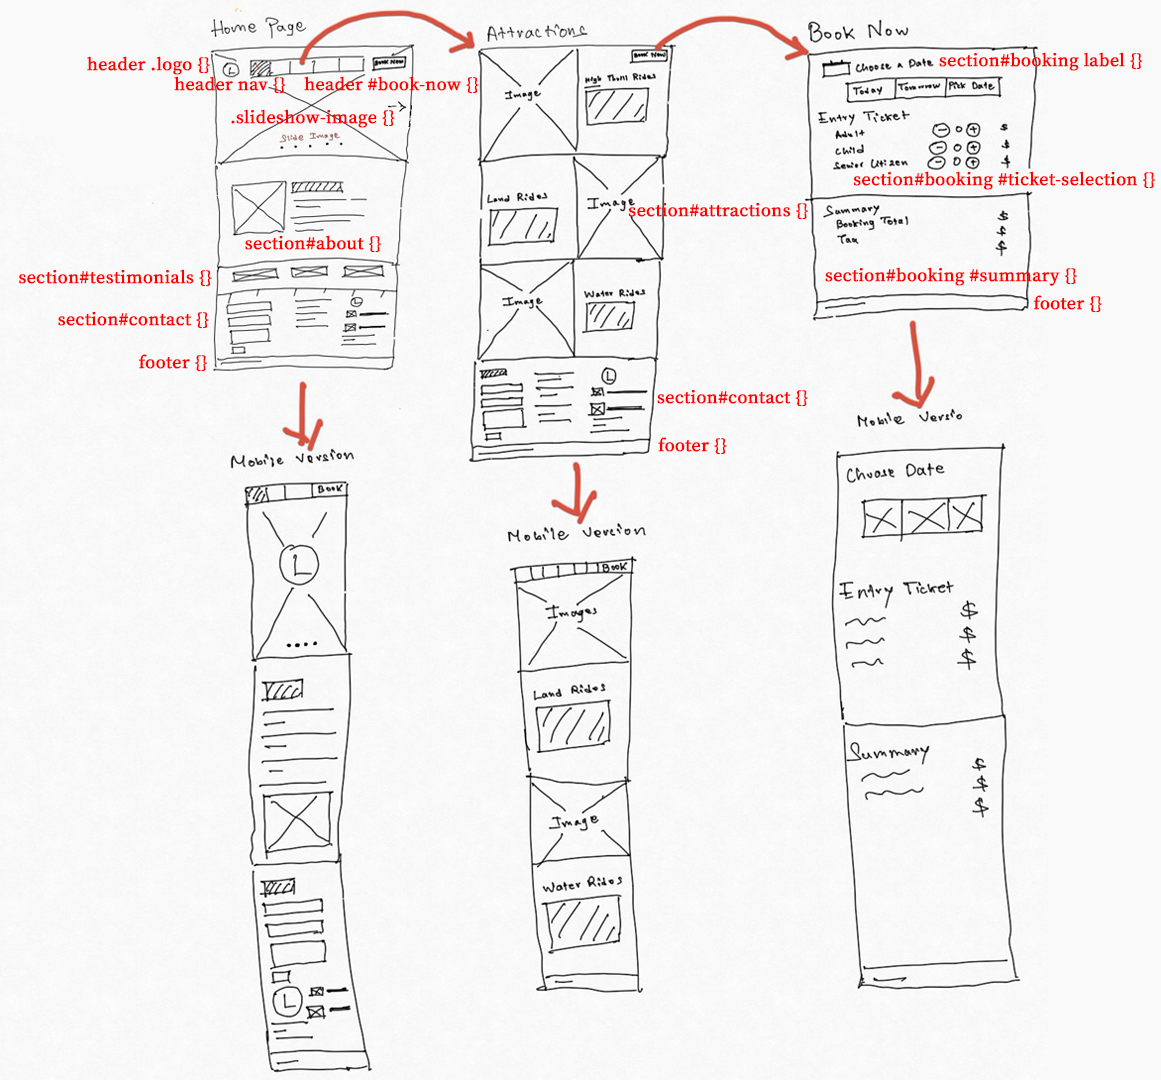 Home Page
header .logo {}
L
Book Now
header nav {}
header #book-now {}
.slideshow-image {}
Slide Image
section#about {}
section#testimonials {}
section#contact {}
L
footer {}
Mobile Version
Book
L
L
Attractions
Book Now
Image
High Thrill Rides
Land Rides
Image
section#attractions {}
Image
Water Rides
L
section#contact {}
footer {}
Mobile Version
Book
Images
Land Rides
Image
Water Rides
Book Now
Choose a Date
section#booking label {}
Today Tomorrow Pick Date
Entry Ticket
Adult - 0 + $
Child - 0 + $
Senior Citizen - 0 + $
section#booking #ticket-selection {}
Summary $
Booking Total $
Tax $
section#booking #summary {}
footer {}
Mobile Versio
Choose Date
Entry Ticket
$
$
$
Summary
$
$
$